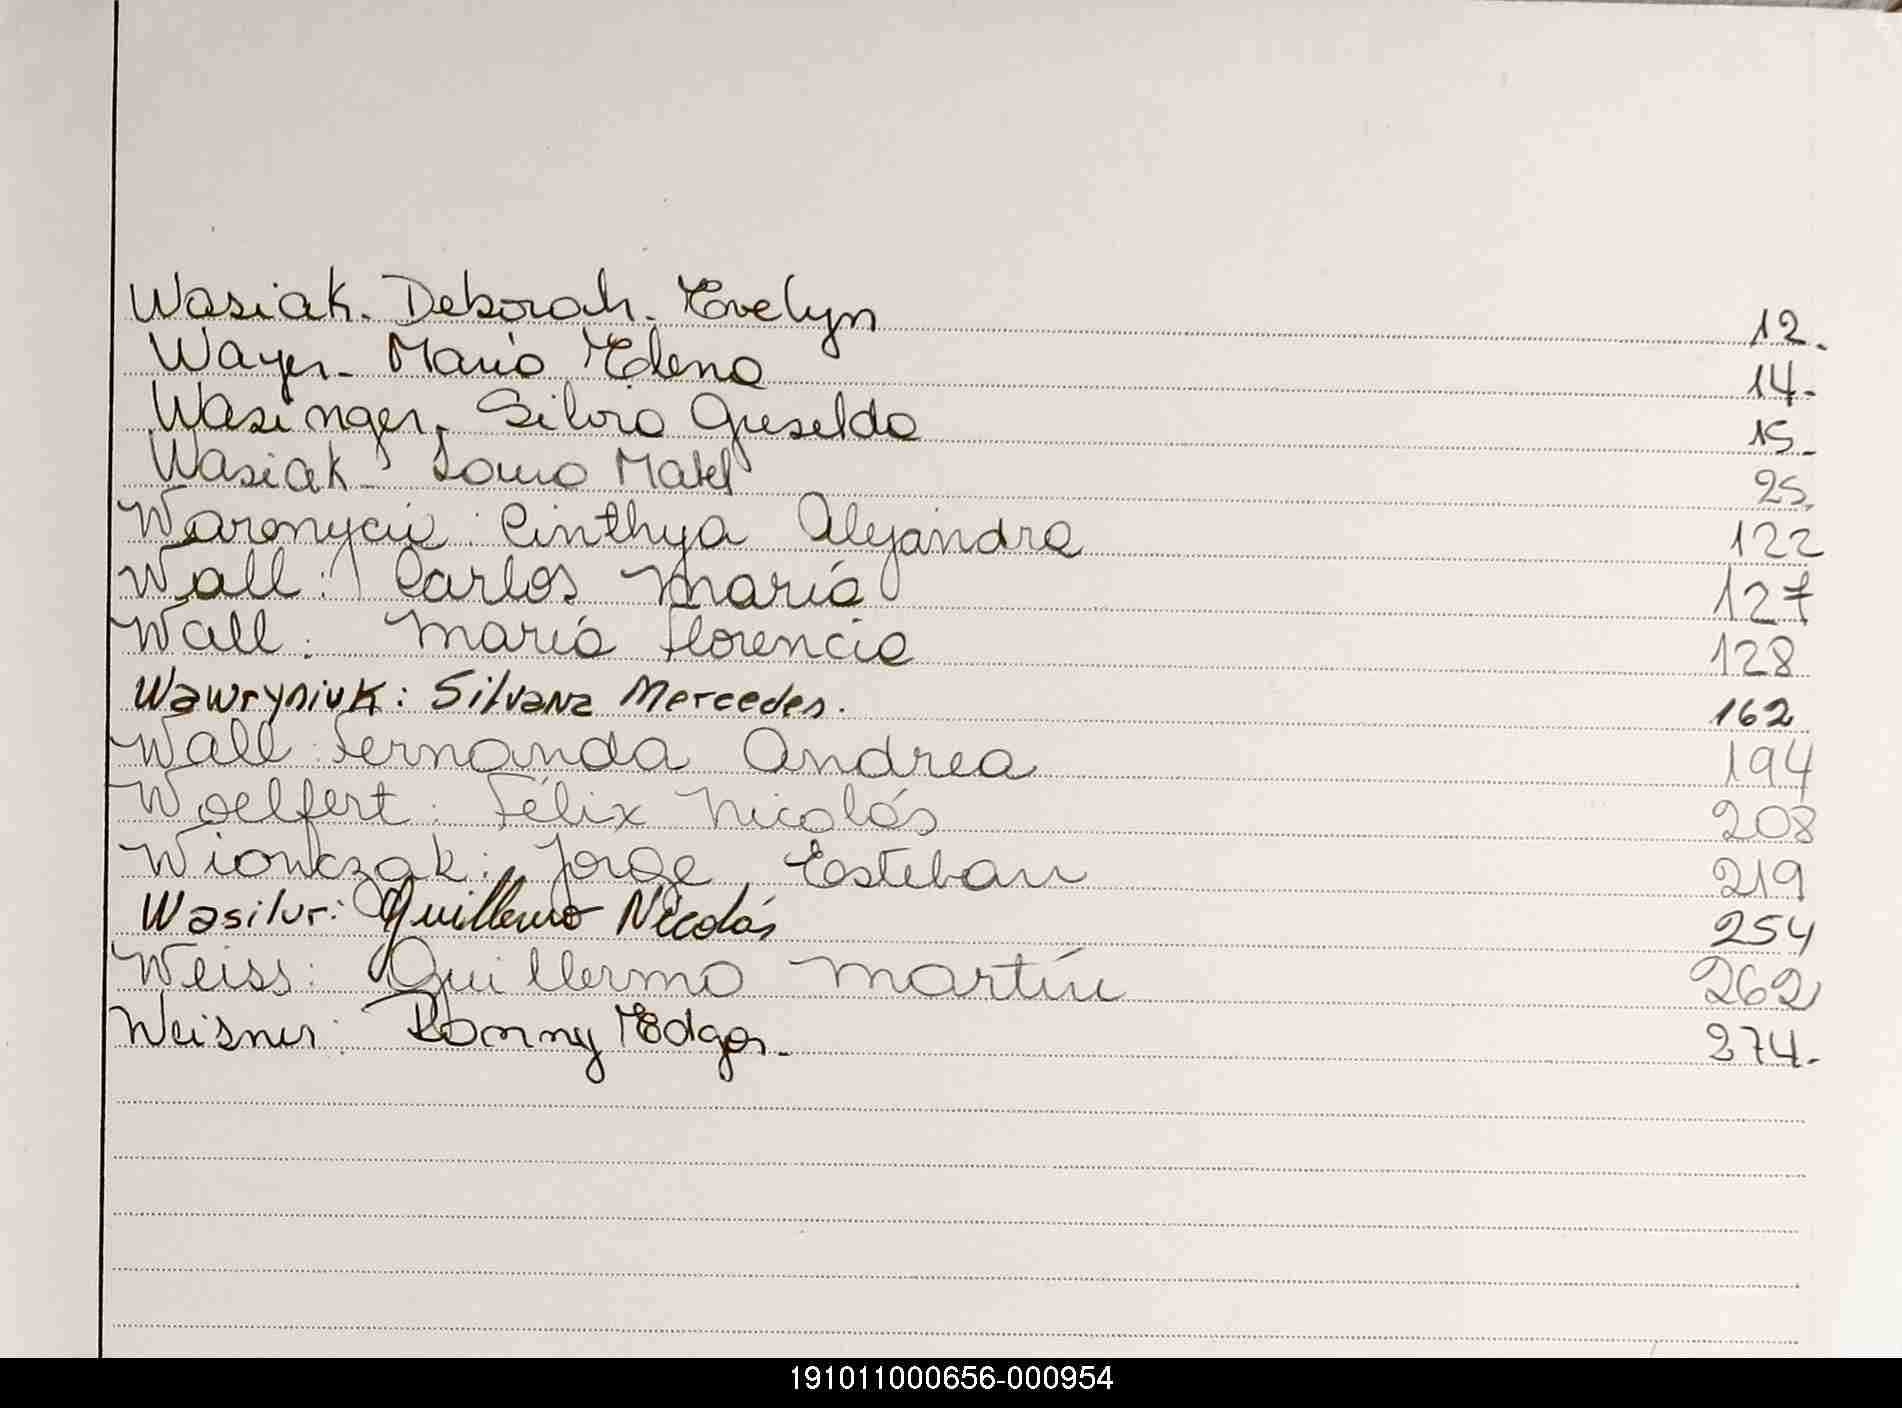 Wasiak. Deborah. Evelyn 12.
Wayer - Maria Elena 14.
Wasinger. Silvia Griselda 15.
Wasiak - Mabel 25.
Waronycie: Cinthya Alejandra 122
Wall: Carlos María 127
Wall: María Florencia 128
Wawryniuk: Silvana Mercedes. 162
Wall: Fernanda Andrea 194
Woelfert: Félix Nicolás 208
Wionczak: Jorge Esteban 219
Wasilur: Guillermo Nicolás 254
Weiss: Guillermo Martín 262
Weisner: Ronny Edgar. 274.
191011000656-000954